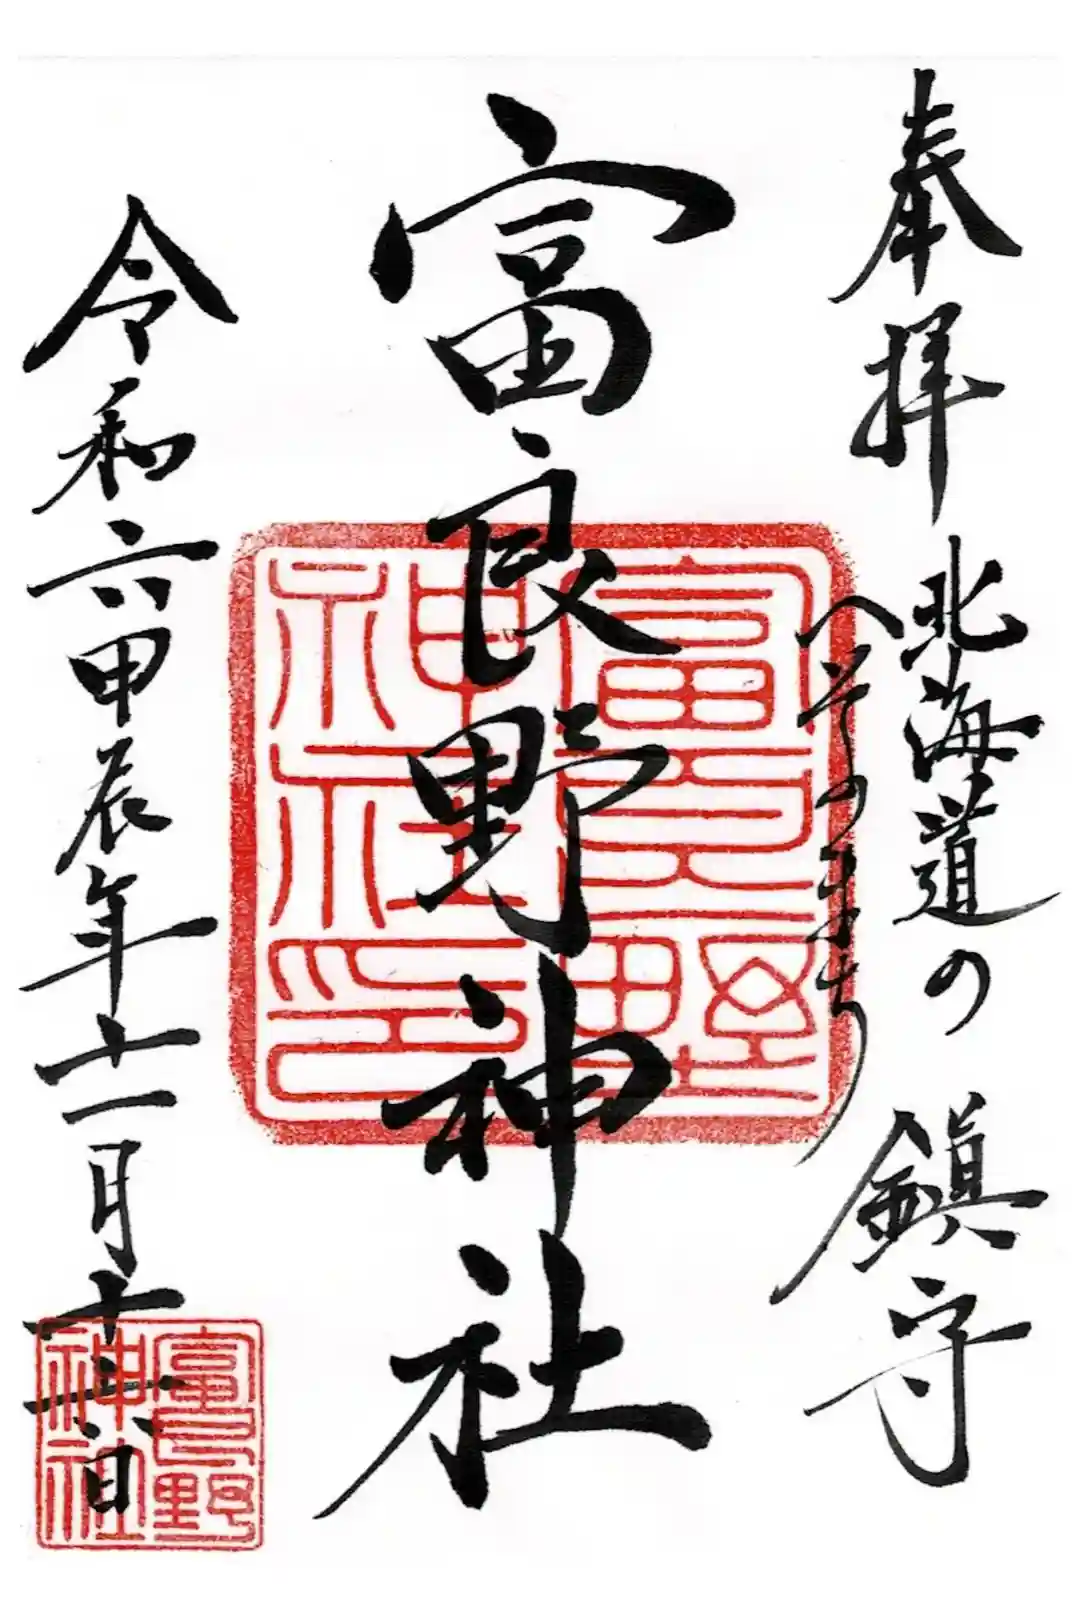 奉拝 北海道の 鎮守
へそのまち
富良野神社
富良野神社印
令和六甲辰年十一月十六日
富良野神社